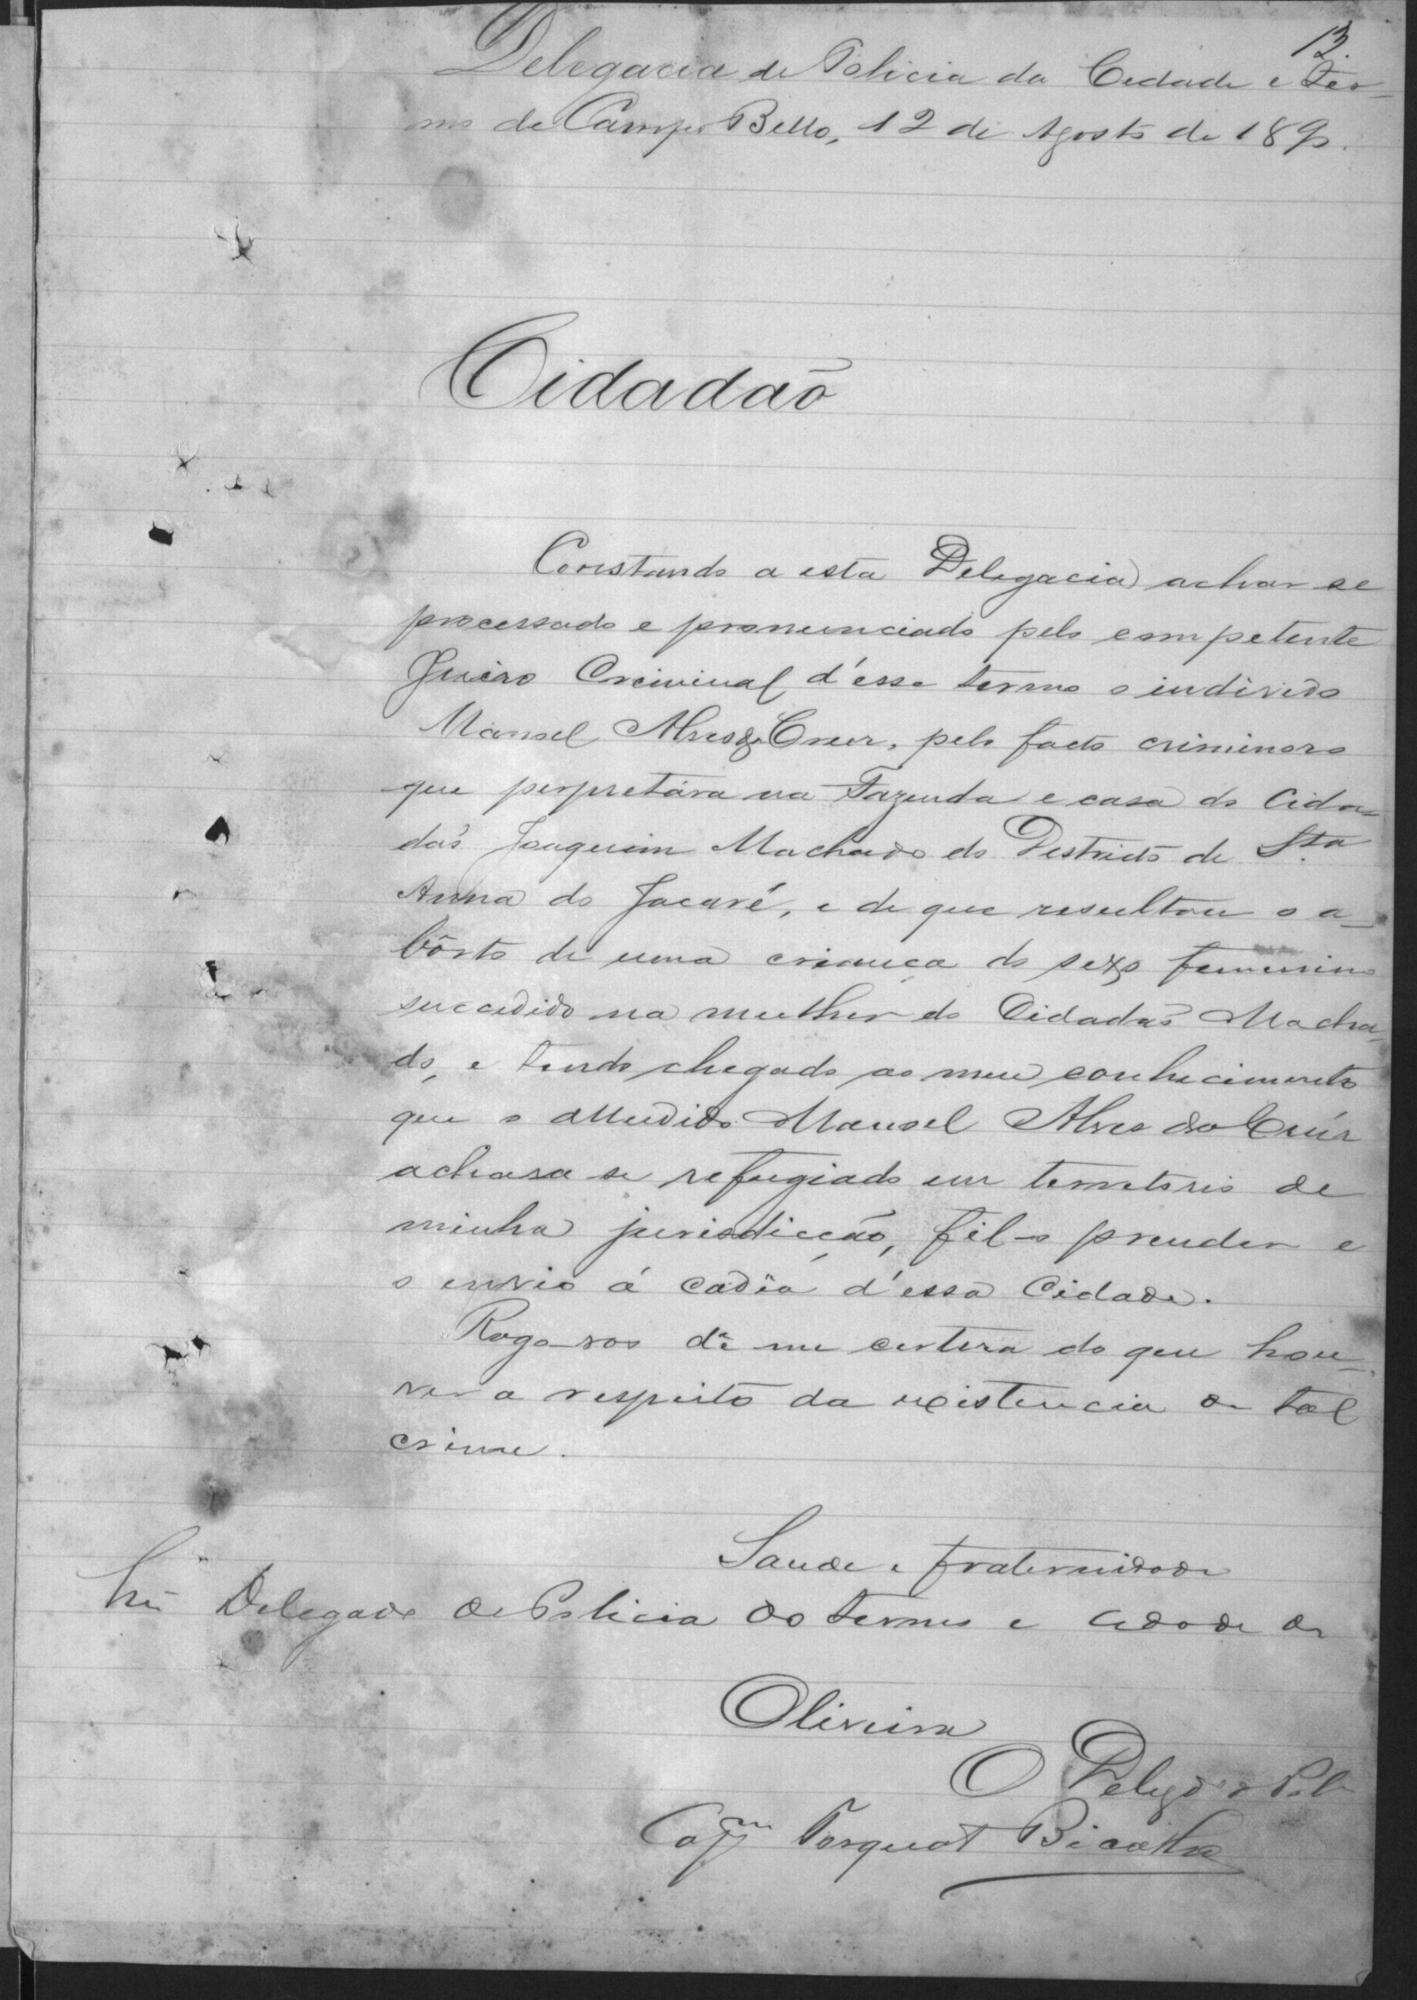 13.
Delegacia de Policia da Cidade e Ter-
mo de Campo Bello, 12 de Agosto de 189
Cidadão
Constando a esta Delegacia achar se
processado e pronunciado pelo competente
Juizo Criminal d'esse termo o individo
Manoel Alves da Cruz, pelo facto criminoso
que perpretára na Fazenda e casa do Cida-
dão Joaquim Machado do Destricto de Sta
Anna do Jacaré, e de que resultou o a-
bôrto de uma criança do sexo femenino
succedido na mulher do Cidadão Macha-
do, e tendo chegado ao meu conhecimento
que o alludido Manoel Alves da Cruz
achava se refugiado em territorio de
minha jurisdicção, fil-o prender e
o envio á cadêa d'essa Cidade.
Rogo-vos dê me certeza do que hou-
ver a respeito da existencia de tal
crime.
Saude e fraternidade
Delegado de Policia do termo e Cidade de
Oliveira
O Delegdo de Pol
Capm Torquato Bicalho